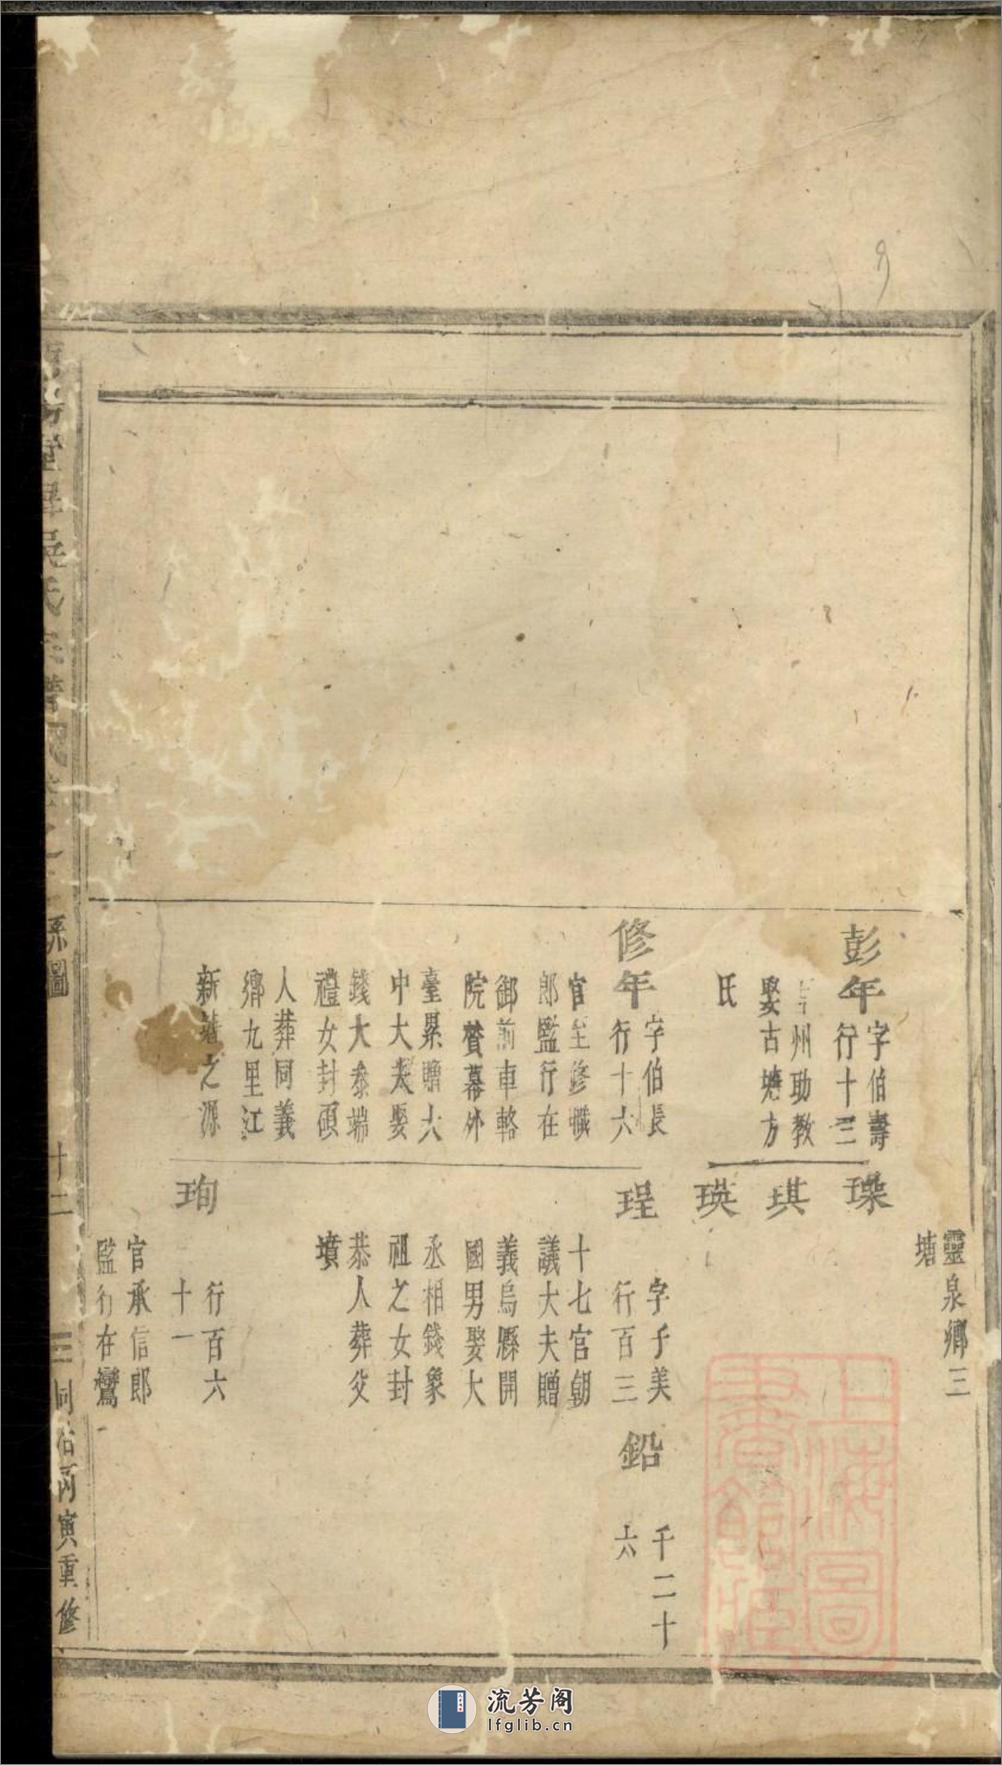 靈泉鄉三
塘
彭年
字伯壽
行十三
州助教
娶古塘方
氏
璪
琪
瑛
修年
字伯長
行十六
官至修職
郎監行在
御前車輅
院贊幕外
臺累贈大
中大夫娶
錢大泰端
禮女封碩
人葬同義
鄉九里江
新塘之源
珵
字子美
行百三
十七官朝
議大夫贈
義烏縣開
國男娶大
丞相錢象
祖之女封
恭人葬父
墳
鉛
千二十
六
珣
行百六
十一
官承信郎
監行在鸞
吳氏宗譜
系圖
十二
同治丙寅重修
上海圖書館藏
流芳阁
lfglib.cn